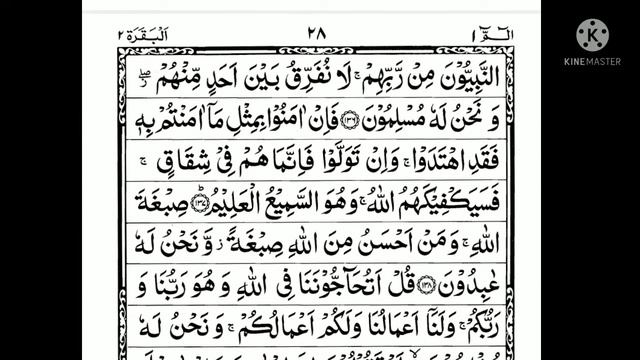 الٓمّٓ ۱ ۲۸ اَلْبَقَرَة ۲
KINEMASTER
النَّبِيُّوْنَ مِنْ رَّبِّهِمْ ۚ لَا نُفَرِّقُ بَيْنَ اَحَدٍ مِّنْهُمْ ۖ
وَ نَحْنُ لَهٗ مُسْلِمُوْنَ ﴿۱۳۶﴾ فَاِنْ اٰمَنُوْا بِمِثْلِ مَاۤ اٰمَنْتُمْ بِهٖ
فَقَدِ اهْتَدَوْا ۚ وَاِنْ تَوَلَّوْا فَاِنَّمَا هُمْ فِيْ شِقَاقٍ ۚ
فَسَيَكْفِيْكَهُمُ اللّٰهُ ۚ وَهُوَ السَّمِيْعُ الْعَلِيْمُ ﴿۱۳۷﴾ؕ صِبْغَةَ
اللّٰهِ ۚ وَمَنْ اَحْسَنُ مِنَ اللّٰهِ صِبْغَةً ؗ وَّ نَحْنُ لَهٗ
عٰبِدُوْنَ ﴿۱۳۸﴾ قُلْ اَتُحَآجُّوْنَنَا فِي اللّٰهِ وَ هُوَ رَبُّنَا وَ
رَبُّكُمْ ۚ وَلَنَاۤ اَعْمَالُنَا وَلَكُمْ اَعْمَالُكُمْ ۚ وَ نَحْنُ لَهٗ